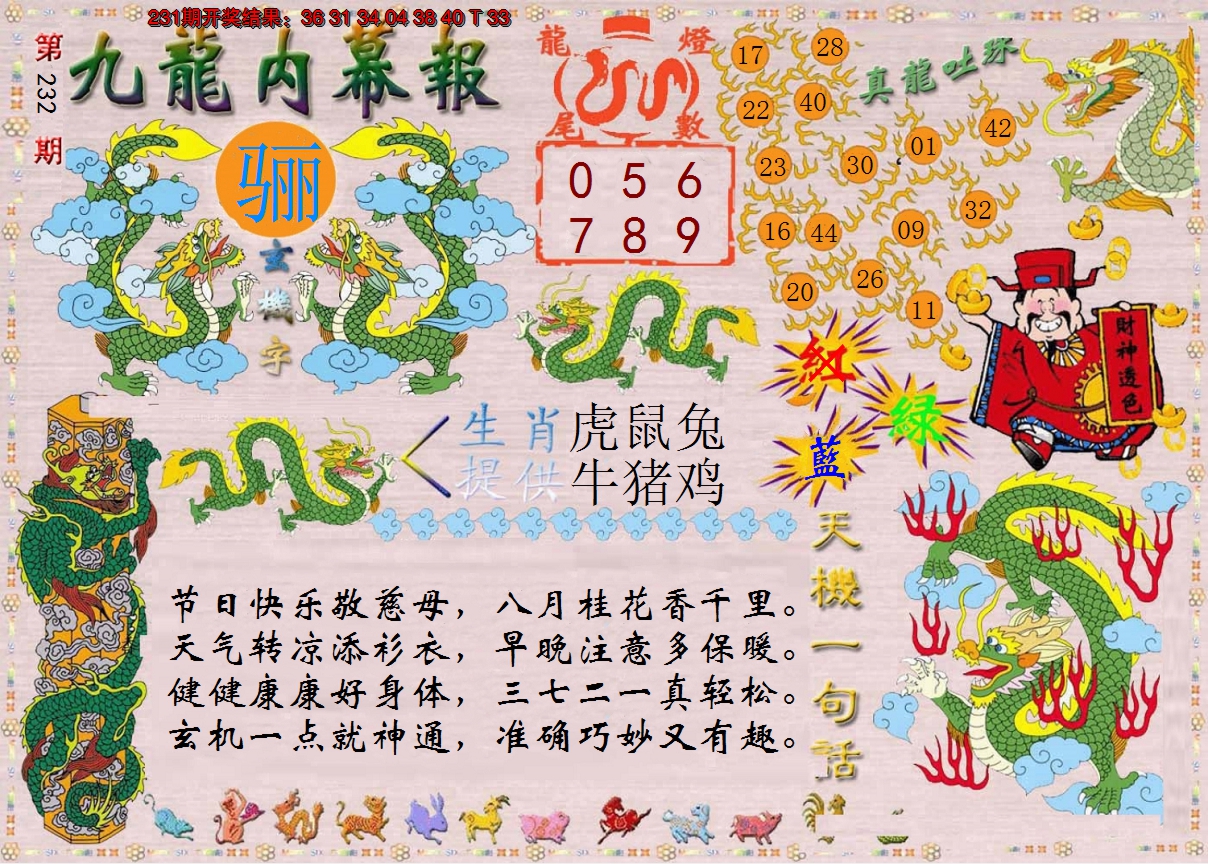 231期开奖结果：36 31 34.04 38 40 T 33
第
232
期
九龍内幕報
骊
玄
機
字
龍
燈
尾
數
0 5 6
7 8 9
真龍吐珠
17
28
22
40
01
42
23
30
32
16
44
09
20
26
11
紅
綠
藍
財神透色
生肖
提供
虎鼠兔
牛猪鸡
天機一句話
节日快乐敬慈母，八月桂花香千里。
天气转凉添衫衣，早晚注意多保暖。
健健康康好身体，三七二一真轻松。
玄机一点就神通，准确巧妙又有趣。